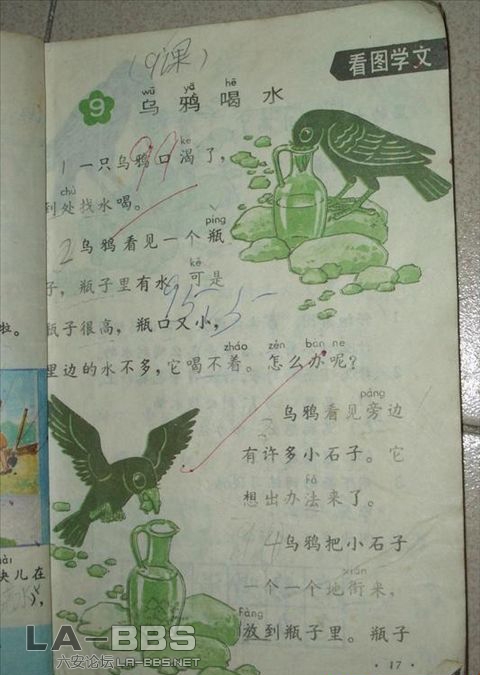 (9课)
看图学文
wū yā hē
9 乌鸦喝水
kě
1 一只乌鸦口渴了，
chù
到处找水喝。
píng
2 乌鸦看见一个瓶
kě
子，瓶子里有水，可是
瓶子很高，瓶口又小，
zháo zěn bàn ne
里边的水不多，它喝不着。怎么办呢？
páng
3 乌鸦看见旁边
有许多小石子。它
fǎ
想出办法来了。
4 乌鸦把小石子
xián
一个一个地衔来，
Fàng
放到瓶子里。瓶子
·17·
啦。
块儿在
LA-BBS
六安论坛LA-BBS.NET